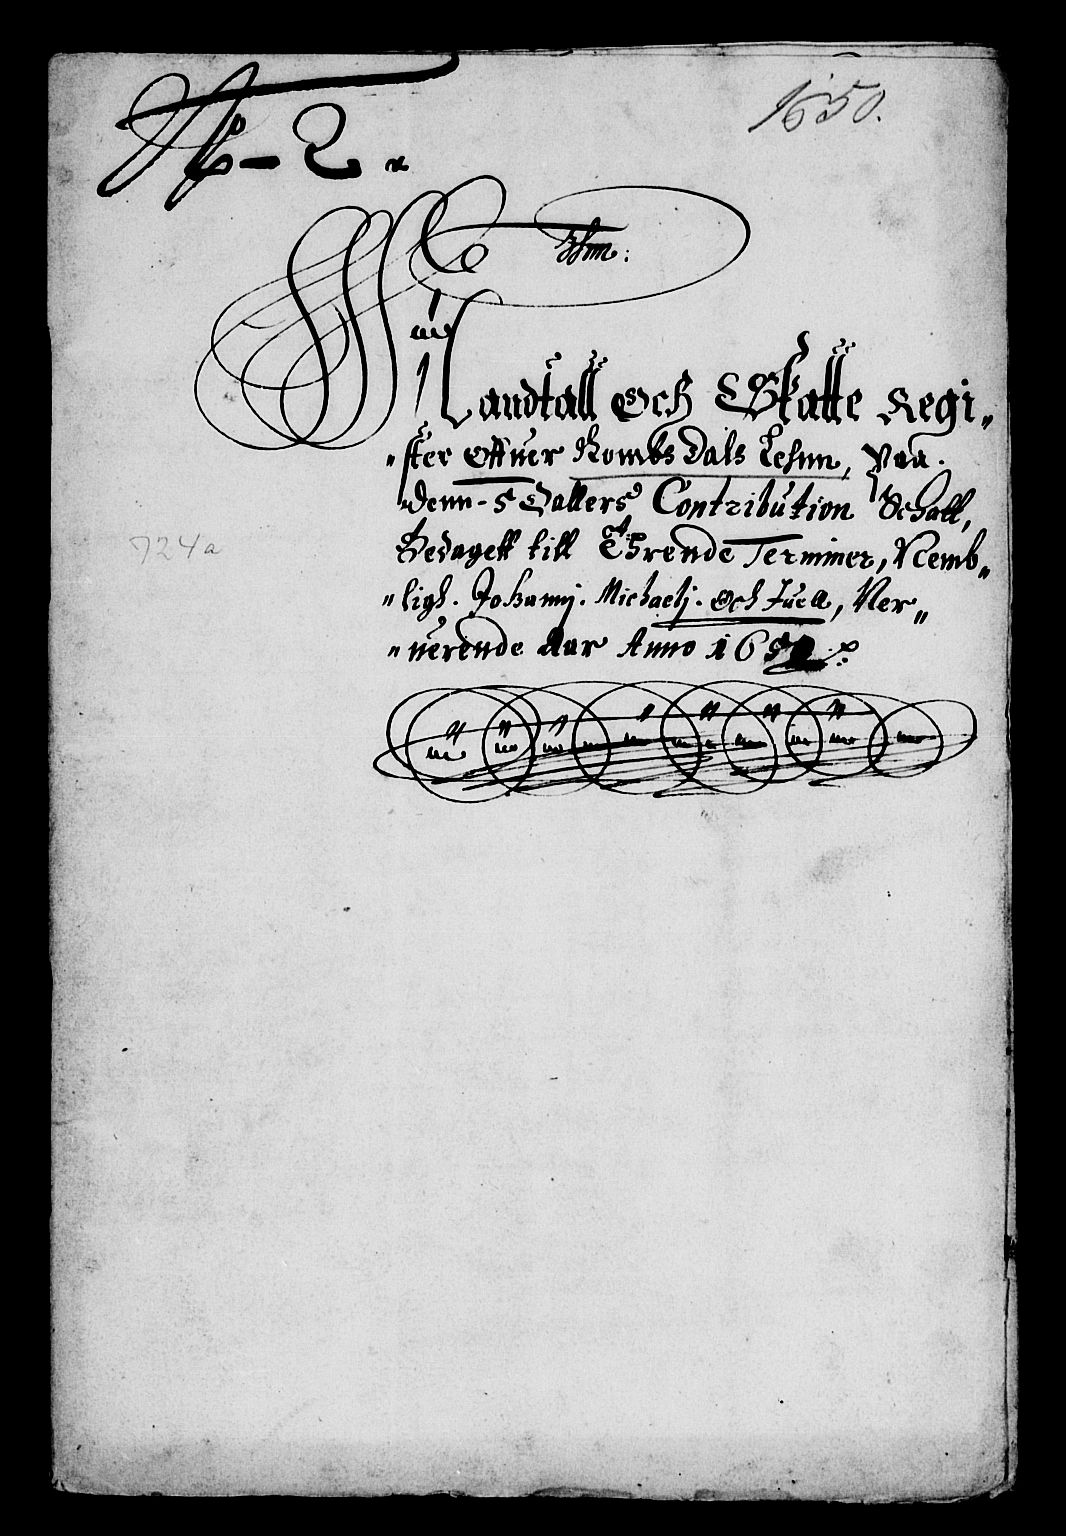 N° - 2.
1650.
Mandtall Och Skatte Regi„
„ster Offuer Rombsdals Lehnn, Paa.
denn - 5 Dallers Contribution Schatt,
Bevagett till Thrende Terminer, Nemb„
„ligh. Johannj. Michaelj. Och Juell, Ner„
„uerende Aar Anno 165
724a